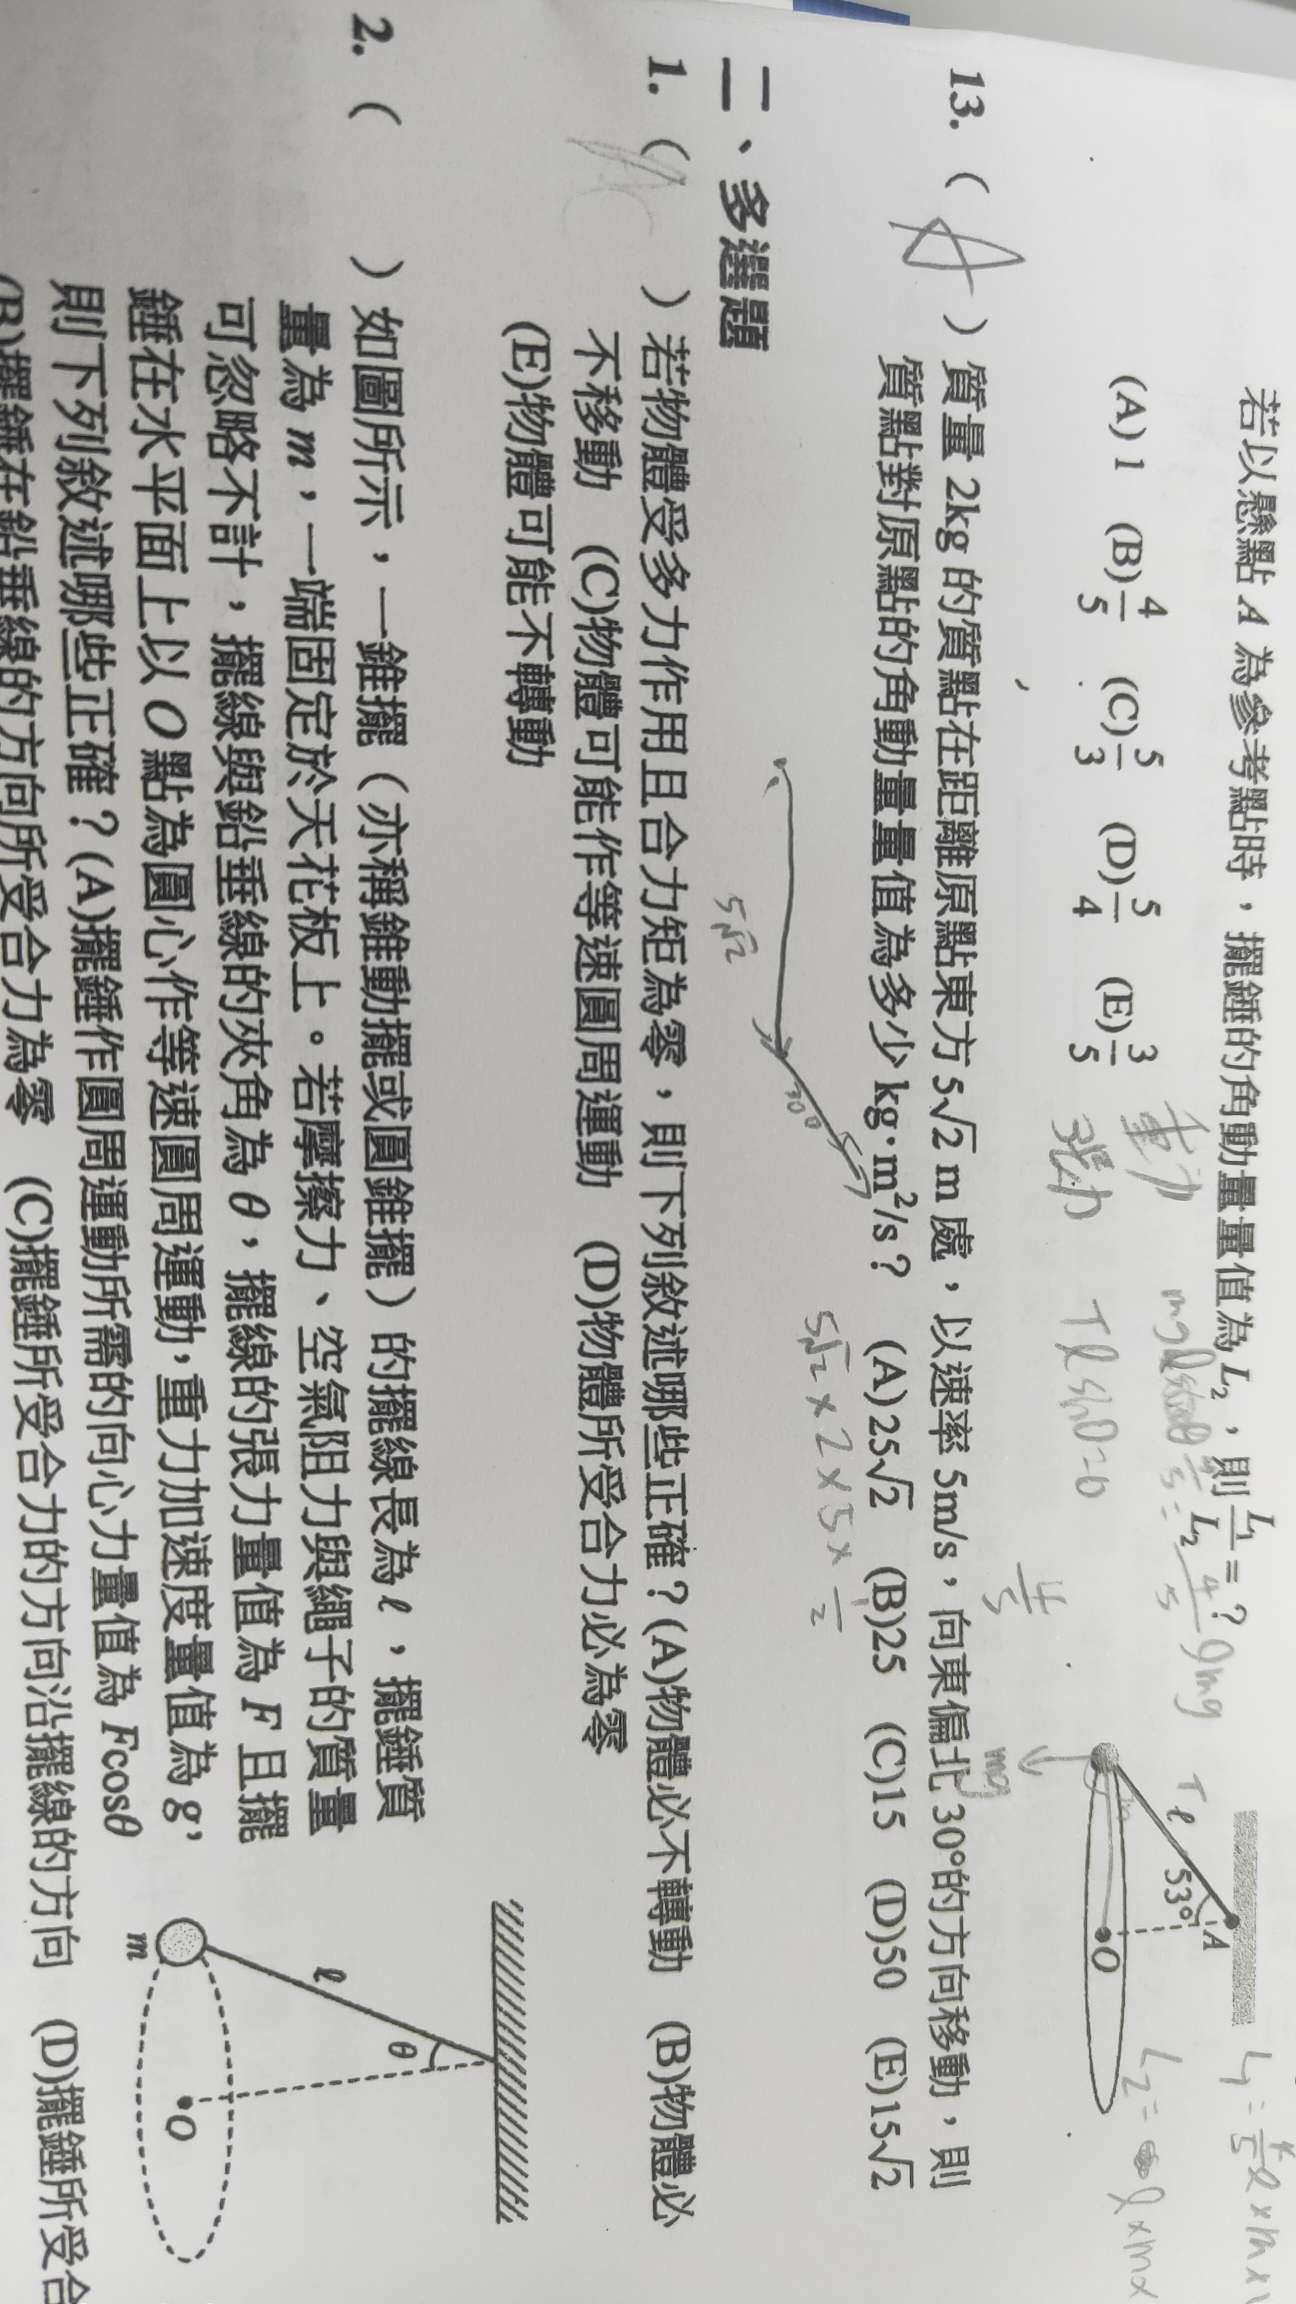 若以懸點 A 為參考點時，擺錘的角動量量值為 L₂，則 L₁/L₂ = ?
(A) 1 (B) 4/5 (C) 5/3 (D) 5/4 (E) 3/5
重力
張力 Tlsinθ=0
4/5 lmg
mg
T
l
53°
A
O
L₁ = 4/5 l × m ×
L₂ = l × m
4/5
13. ( A ) 質量 2kg 的質點在距離原點東方 5√2 m 處，以速率 5m/s，向東偏北 30°的方向移動，則
質點對原點的角動量量值為多少 kg·m²/s？ (A) 25√2 (B)25 (C)15 (D)50 (E)15√2
5√2
30°
5
5√2 × 2 × 5 × 1/2
二、多選題
1. ( ) 若物體受多力作用且合力矩為零，則下列敘述哪些正確？(A)物體必不轉動 (B)物體必
不移動 (C)物體可能作等速圓周運動 (D)物體所受合力必為零
(E)物體可能不轉動
2. ( ) 如圖所示，一錐擺（亦稱錐動擺或圓錐擺）的擺線長為 ℓ，擺錘質
量為 m，一端固定於天花板上。若摩擦力、空氣阻力與繩子的質量
可忽略不計，擺線與鉛垂線的夾角為 θ，擺線的張力量值為 F 且擺
錘在水平面上以 O 點為圓心作等速圓周運動，重力加速度量值為 g，
則下列敘述哪些正確？(A)擺錘作圓周運動所需的向心力量值為 Fcosθ
(B)擺錘在鉛垂線的方向所受合力為零 (C)擺錘所受合力的方向沿擺線的方向 (D)擺錘所受合
ℓ
θ
m
O